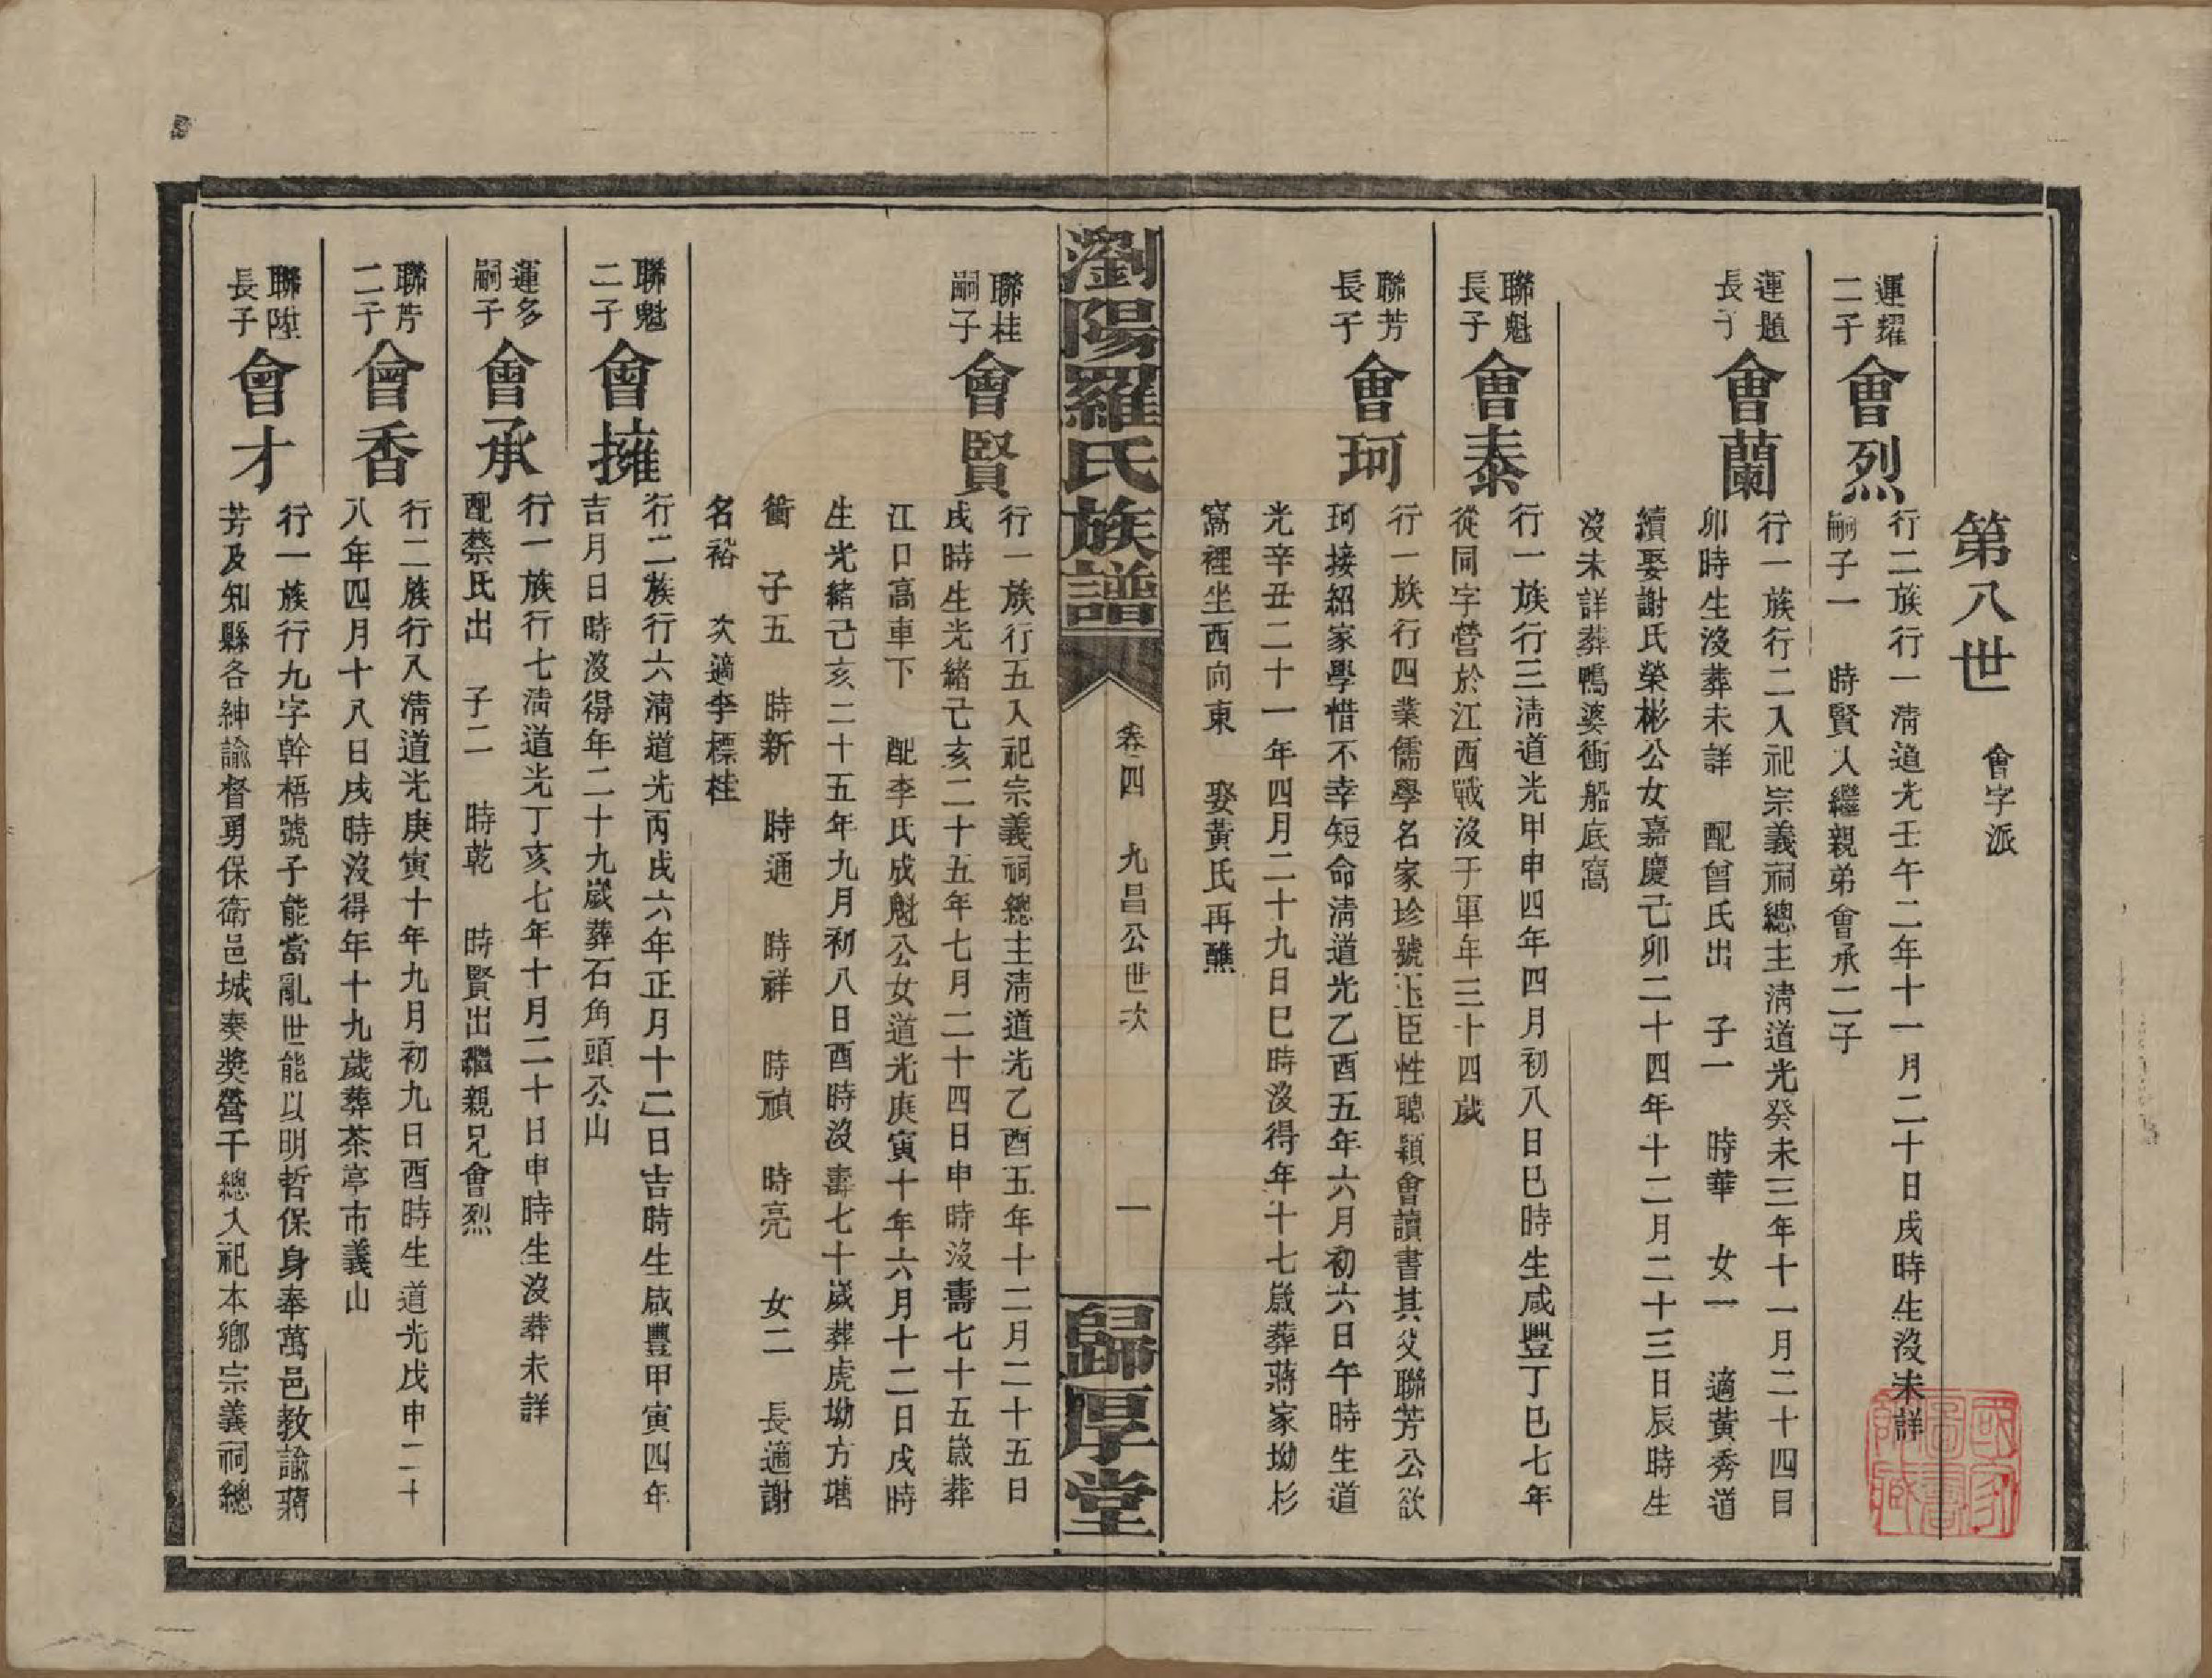 第八世　會字派
運耀
二子
會烈
行二族行一清道光壬午二年十一月二十日戌時生沒未詳
嗣子一　時賢入繼親弟會承二子
運題
長子
會蘭
行一族行二入祀宗義祠總主清道光癸未三年十一月二十四日
卯時生沒葬未詳　配曾氏出　子一　時華　女一　適黃秀道
續娶謝氏榮彬公女嘉慶己卯二十四年十二月二十三日辰時生
沒未詳葬鴨婆衝船底窩
聯魁
長子
會泰
行一族行三清道光甲申四年四月初八日巳時生咸豐丁巳七年
從同字營於江西戰沒于軍年三十四歲
聯芳
長子
會珂
行一族行四業儒學名家珍號玉臣性聰穎會讀書其父聯芳公欲
珂接紹家學惜不幸短命清道光乙酉五年六月初六日午時生道
光辛丑二十一年四月二十九日巳時沒得年十七歲葬蔣家坳杉
窩裡坐西向東　娶黃氏再醮
瀏陽羅氏族譜
卷四　九昌公世次　一
歸厚堂
聯桂
嗣子
會賢
行一族行五入祀宗義祠總主清道光乙酉五年十二月二十五日
戌時生光緒己亥二十五年七月二十四日申時沒壽七十五歲葬
江口高車下　配李氏成魁公女道光庚寅十年六月十二日戌時
生光緒己亥二十五年九月初八日酉時沒壽七十歲葬虎坳方塘
衝　子五　時新　時通　時祥　時禎　時亮　女二　長適謝
名裕　次適李標桂
聯魁
二子
會擁
行二族行六清道光丙戌六年正月十二日吉時生咸豐甲寅四年
吉月日時沒得年二十九歲葬石角頭公山
運多
嗣子
會承
行一族行七清道光丁亥七年十月二十日申時生沒葬未詳
配蔡氏出　子二　時乾　時賢出繼親兄會烈
聯芳
二子
會香
行二族行八清道光庚寅十年九月初九日酉時生道光戊申二十
八年四月十八日戌時沒得年十九歲葬茶亭市義山
聯陞
長子
會才
行一族行九字幹梧號子能當亂世能以明哲保身奉萬邑教諭蔣
芳及知縣各紳諭督勇保衛邑城奏獎營千總入祀本鄉宗義祠總
國家
圖書
館藏